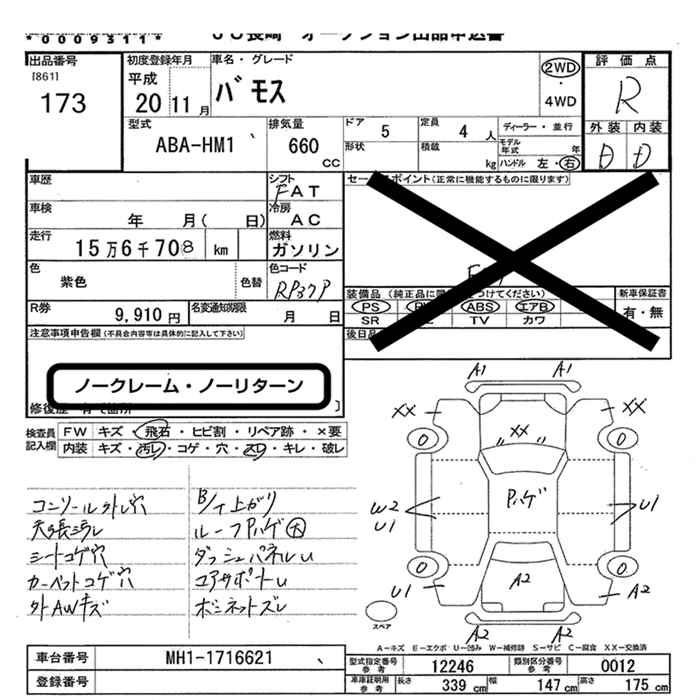 *0009311*
JU長崎 オークション出品申込書
出品番号
[861]
173
初度登録年月
平成
20 11 月
車名・グレード
バモス
2WD
・
4WD
評価点
R
外装 内装
D D
型式
ABA-HM1
排気量
660
CC
ドア
5
定員
4 人
ディーラー・並行
形状
積載
kg
モデル年式
年
ハンドル 左・右
車歴
シフト
FAT
セールスポイント(正常に機能するものに限ります)
車検
年 月( 日)
冷房
AC
走行
15万6千708 km
燃料
ガソリン
色
紫色
色替
色コード
RP37P
R券
9,910 円
名変通知期限
月 日
装備品
PS
ABS
エアB
SR
TV
カワ
新車保証書
有・無
後日品
注意事項申告欄(不具合内容等は具体的に記入して下さい)
ノークレーム・ノーリターン
検査員
記入欄
FW キズ・飛石・ヒビ割・リペア跡・×要
内装 キズ・汚レ・コゲ・穴・スレ・キレ・破レ
コンソール外レ穴
天張ミラレ
シートコゲ穴
カーペットコゲ穴
外AWキズ
B/T上ガリ
ルーフPハゲ大
ダッシュパネルU
コアサポートU
ボンネットズレ
A1 A1
XX XX
XX
0 0
Pハゲ
W2
U1
U1
0 0
U1 A2 A2
A2 A2
スペア
A-キズ E-エクボ U-凹み W-補修跡 S-サビ C-腐食 XX-交換済
車台番号
MH1-1716621
登録番号
型式指定番号
参考
12246
類別区分番号
参考
0012
車庫証明用
参考
長さ
339 cm
幅
147 cm
高さ
175 cm